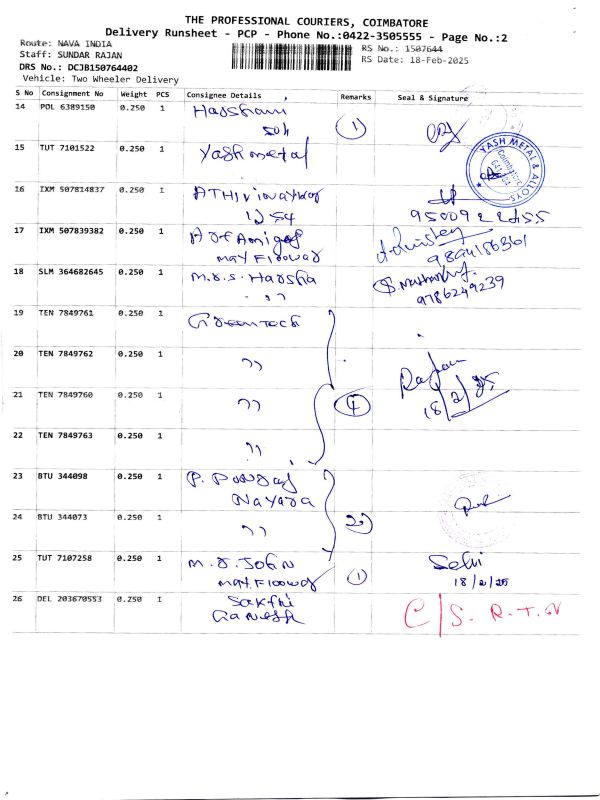 THE PROFESSIONAL COURIERS, COIMBATORE
Delivery Runsheet - PCP - Phone No.:0422-3505555 - Page No.:2
Route: NAVA INDIA
RS No.: 1507644
Staff: SUNDAR RAJAN
RS Date: 18-Feb-2025
DRS No.: DCJB150764402
Vehicle: Two Wheeler Delivery
S No Consignment No Weight PCS Consignee Details Remarks Seal & Signature
14 POL 6389150 0.250 1 1
15 TUT 7101522 0.250 1 Yash metal
YASH METAL & ALLOYS
Coimbatore
16 IXM 507814837 0.250 1
17 IXM 507839382 0.250 1
18 SLM 364682645 0.250 1 M.r.s. Harsha
,,
9786249239
19 TEN 7849761 0.250 1 Greentech
20 TEN 7849762 0.250 1 ,,
Rajan
18/2/25
21 TEN 7849760 0.250 1 ,, 4
22 TEN 7849763 0.250 1 ,,
23 BTU 344098 0.250 1 P. Ponraj
Nayara
24 BTU 344073 0.250 1 ,, 2
25 TUT 7107258 0.250 1 M.r. John 1 Selvi
Mayflower 18/2/25
26 DEL 203670553 0.250 1 Sakthi
Ganesh
C/S. R.T.O